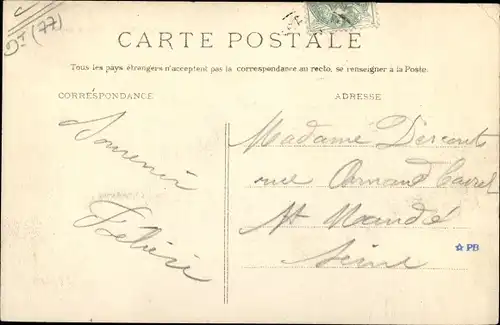 DT (77)
CARTE POSTALE
Tous les pays étrangers n'acceptent pas la correspondance au recto, se renseigner à la Poste.
CORRESPONDANCE
ADRESSE
Souvenir
Félicie
Madame
rue Armand Carrel
St Mandé
Seine
☆ PB